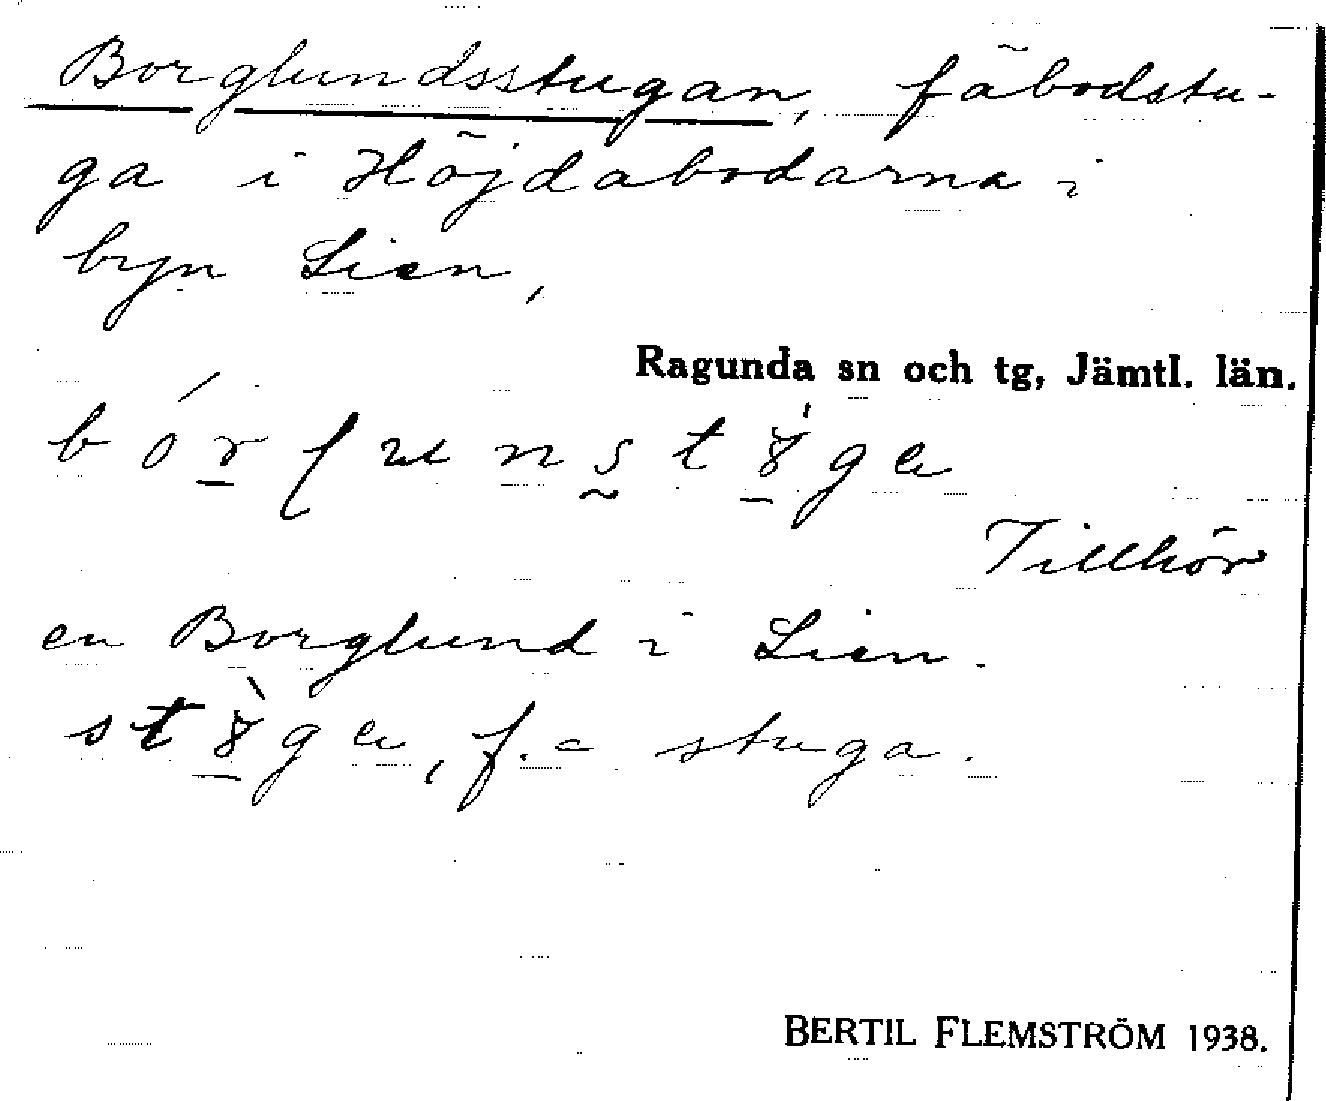 Borglundsstugan, fäbodstu-
ga i Höjdabodarna i
byn Lien,
Ragunda sn och tg, Jämtl. län.
Tillhör
en Borglund i Lien.
f. = stuga.
BERTIL FLEMSTRÖM 1938.